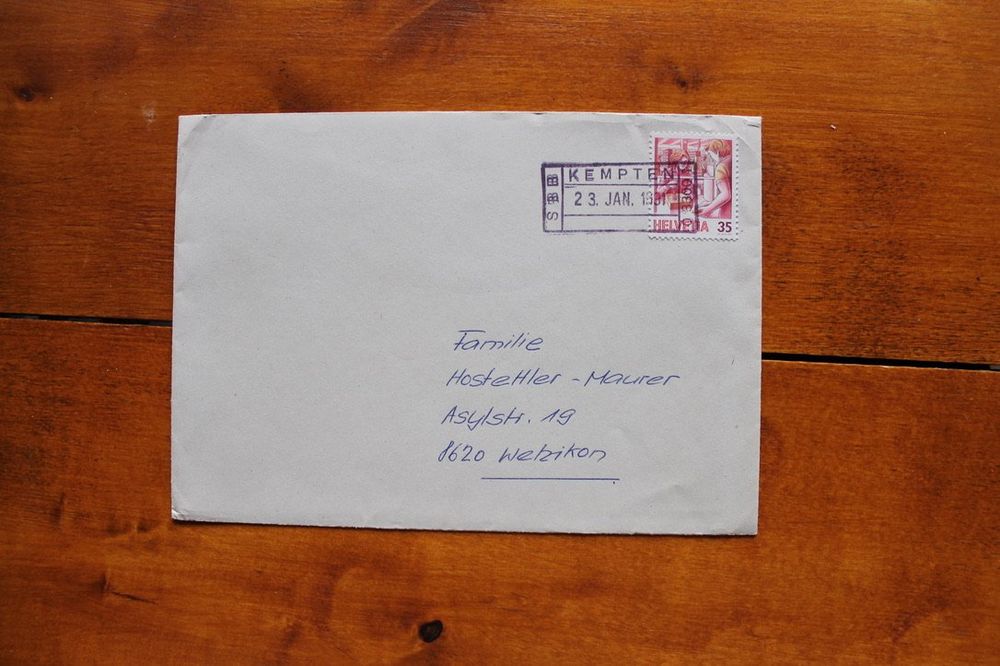 KEMPTEN
SBB
23. JAN. 1991
HELVETIA 35
Familie
Hostettler-Maurer
Asylstr. 19
8620 Wetzikon